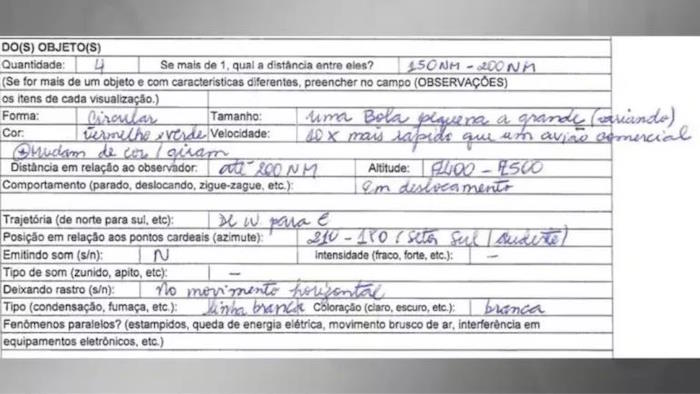 DO(S) OBJETO(S)
Quantidade: 4 Se mais de 1, qual a distância entre eles? 150NM - 200NM
(Se for mais de um objeto e com características diferentes, preencher no campo (OBSERVAÇÕES)
os itens de cada visualização.)
Forma: Circular Tamanho: uma Bola pequena a grande (variando)
Cor: vermelho e verde Velocidade: 10 x mais rápido que um avião comercial
Mudam de cor / giram
Distância em relação ao observador: até 200NM Altitude: FL400 - FL500
Comportamento (parado, deslocando, zigue-zague, etc.): em deslocamento
Trajetória (de norte para sul, etc): De W para E
Posição em relação aos pontos cardeais (azimute): 210 - 180 (Setor Sul /
Emitindo som (s/n): N Intensidade (fraco, forte, etc.): -
Tipo de som (zunido, apito, etc): -
Deixando rastro (s/n): No movimento horizontal
Tipo (condensação, fumaça, etc.): linha branca Coloração (claro, escuro, etc.): branca
Fenômenos paralelos? (estampidos, queda de energia elétrica, movimento brusco de ar, interferência em
equipamentos eletrônicos, etc.)